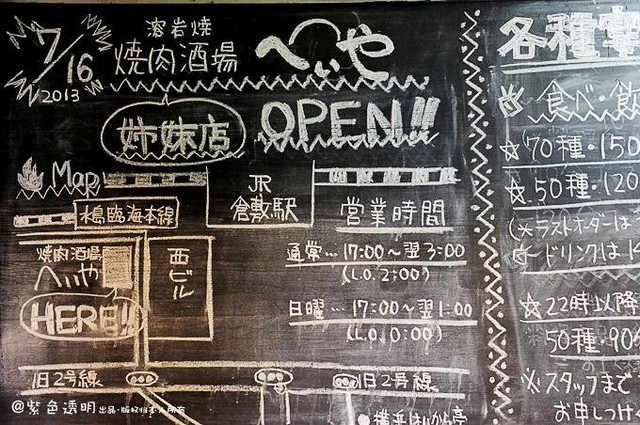 7/16
2013
溶岩焼
焼肉酒場
へいや
姉妹店
OPEN!!
Map
JR
倉敷駅
臨海本線
焼肉酒場
へいや
HERE!!
西ビル
営業時間
通常…17:00～翌3:00
(L.O. 2:00)
日曜…17:00～翌1:00
(L.O. 0:00)
旧2号線
旧2号線
各種
食べ・飲
☆70種・150
☆50種・120
(※ラストオーダーは
ドリンクは
☆22時以降
50種・90
※スタッフまで
お申しつけ
@紫色透明 出品·版权归本人所有